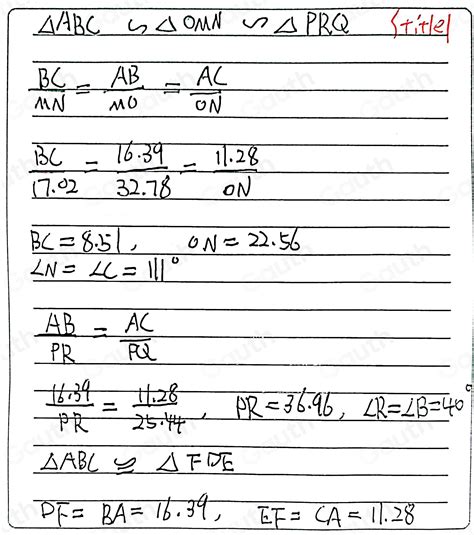 △ABC ∽ △OMN ∽ △PRQ {title}
BC/MN = AB/MO = AC/ON
BC/17.02 = 16.39/32.78 = 11.28/ON
BC = 8.51, ON = 22.56
∠N = ∠C = 111°
AB/PR = AC/PQ
16.39/PR = 11.28/25.44, PR = 36.96, ∠R=∠B=40°
△ABC ≌ △FDE
DF = BA = 16.39, EF = CA = 11.28